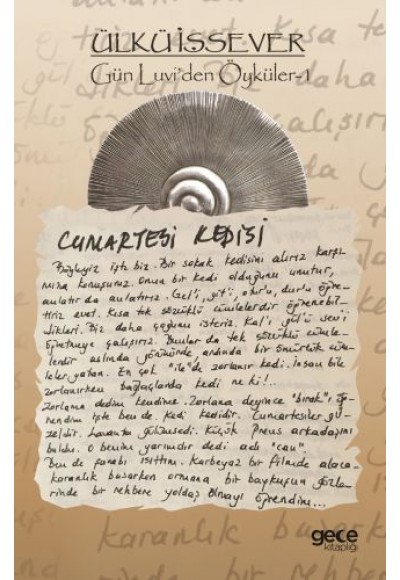 ÜLKÜ İSSEVER
Gün Luvi'den Öyküler-1
CUMARTESİ KEDİSİ
Böyleyiz işte biz. Bir sokak kedisini alırız karşı-
mıza konuşuruz. Onun bir kedi olduğunu unutur,
anlatır da anlatırız. Gel'i, git'i, otur'u, dur'u öğre-
tiriz evet. Kısa tek sözcüklü cümlelerdir öğrenebil-
dikleri. Biz daha çoğunu isteriz. Kal'ı, gül'ü, sev'i
öğretmeye çalışırız. Bunlar da tek sözcüklü cümle-
lerdir aslında görünürde, ardında bir ömürlük cüm-
leler yatan. En çok "ile"de zorlanır kedi. İnsan bile
zorlanırken bağlaçlarda kedi ne ki!..
Zorlama dedim kendime. Zorlama deyince "bırak"ı öğ-
rendim işte ben de. Kedi kedidir. Cumartesiler gü-
zeldir. Lavanta gülümsedi. Küçük Prens arkadaşını
buldu. O benim yarımdır dedi adı "can".
Ben de şarabı ısıttım. Karbeyaz bir filmde alaca-
karanlık buzarken ormana bir baykuşun gözle-
rinde bir rehbere yoldaş olmayı öğrendim...
gece
kitaplığı